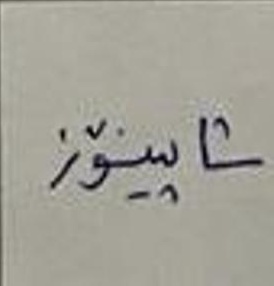 شاپینۆز